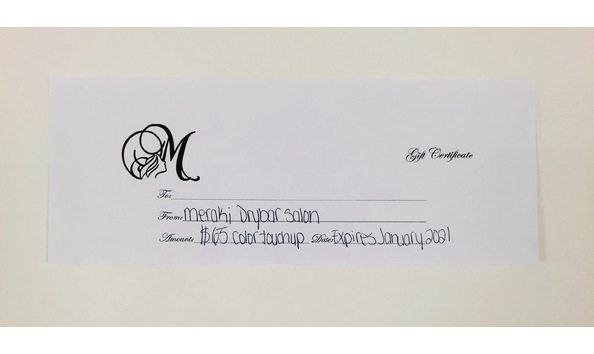 M
Gift Certificate
To:
From: Meraki Drybar Salon
Amount: $65 color touchup Date: Expires January 2021